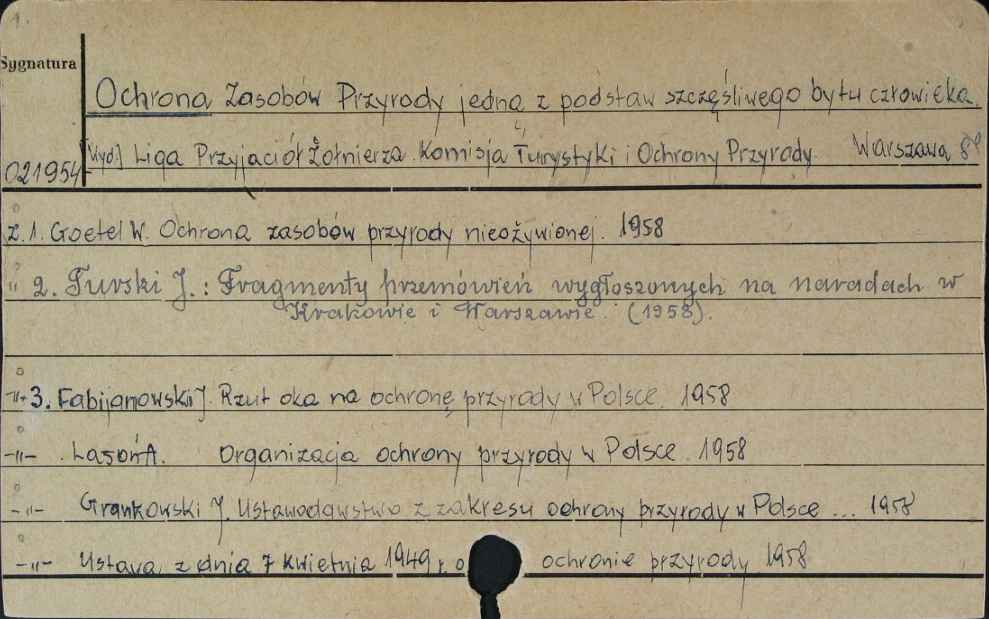 1.
Sygnatura
Ochrona Zasobów Przyrody jedną z podstaw szczęśliwego bytu człowieka.
021954 [Wyd.] Liga Przyjaciół Żołnierza. Komisja Turystyki i Ochrony Przyrody. Warszawa 8°
z. 1. Goetel W. Ochrona zasobów przyrody nieożywionej. 1958
" 2. Turski J.: Fragmenty przemówień wygłoszonych na naradach w
Krakowie i Warszawie. (1958).
-"- 3. Fabijanowski J. Rzut oka na ochronę przyrody w Polsce. 1958
-"- . Lasoń A. Organizacja ochrony przyrody w Polsce. 1958
-"- Grankowski J. Ustawodawstwo z zakresu ochrony przyrody w Polsce ... 1958
-"- Ustawa z dnia 7 kwietnia 1949 r. o ochronie przyrody 1958